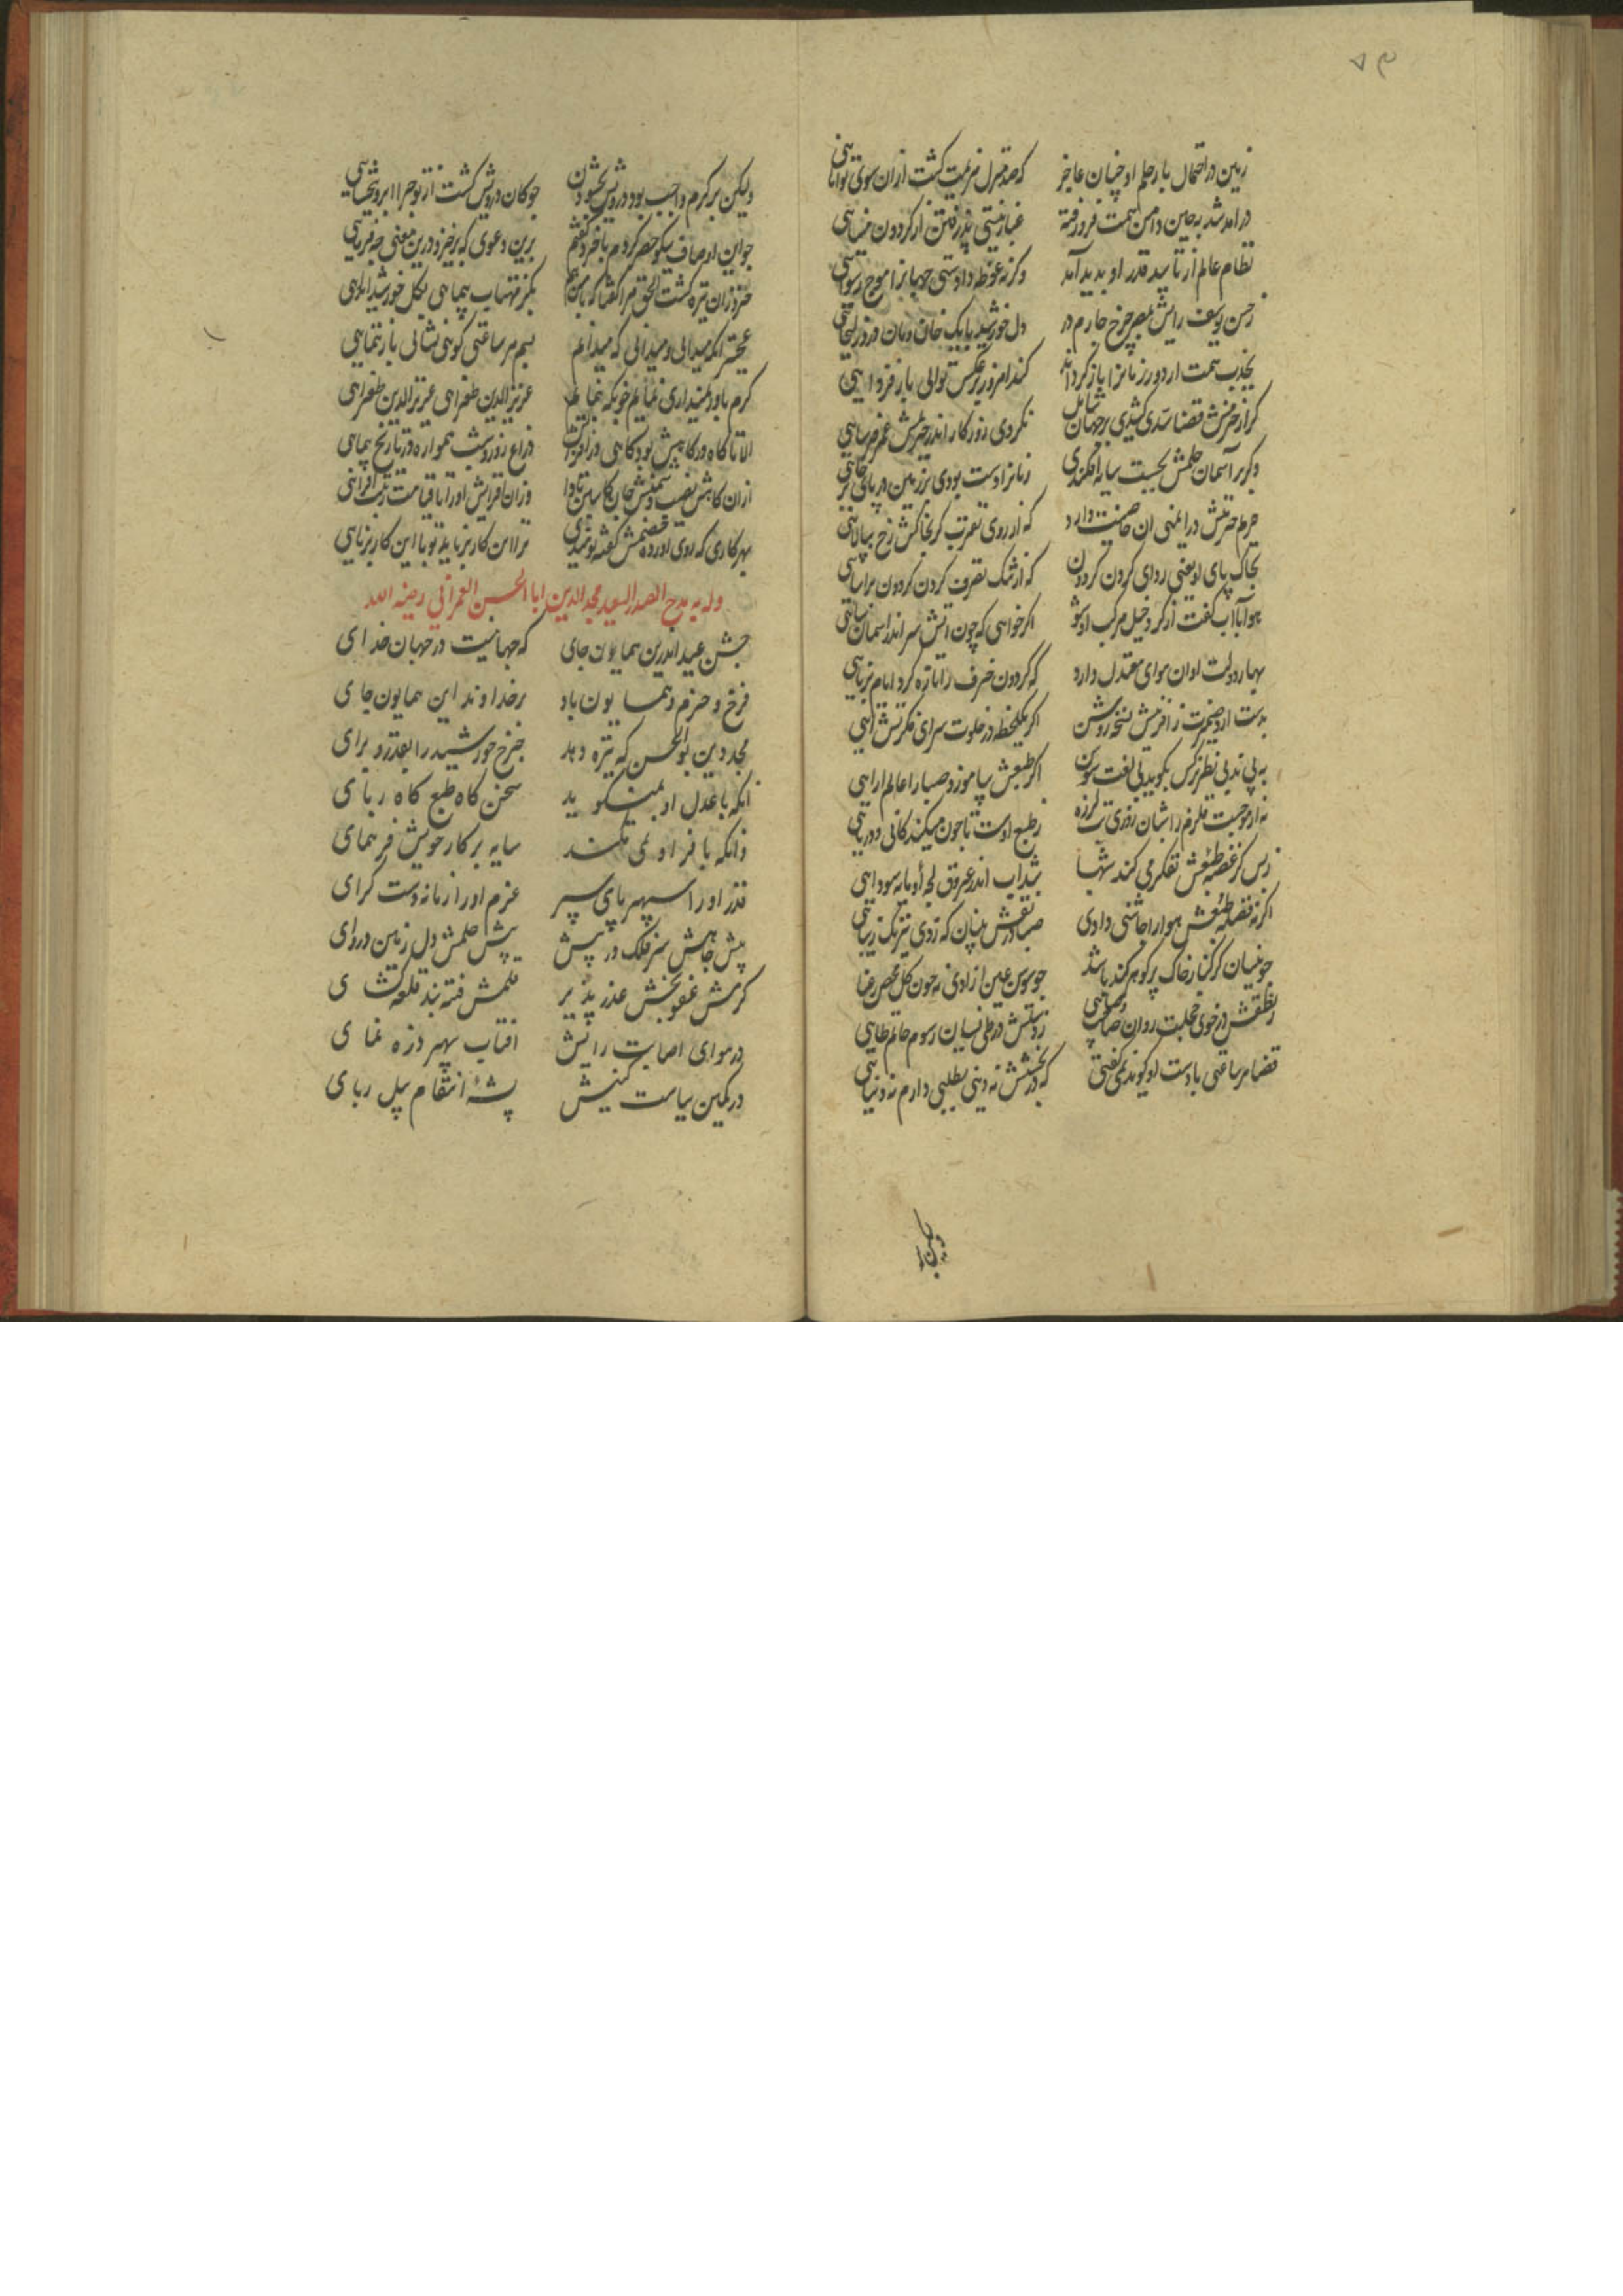 ۷۳
زمین در احتمال بار حلم او چنان عاجز که صد منزل هزیمت گشت ازان سوی توانایی
در امد شد به جین دامن همت فرو رفته غبار نیستی پذرفتن از کردون مینایی
نظام عالم از تایید قدر او بدید آمد وکرنه غوطه دادستی جهانرا موج رسوایی
ز حسن یوسف رایش بمصر چرخ چارم در دل خورشید بابک خان ومان درد زلیخایی
بجذب همت ار دور زمانرا باز کرداند کند امروز بر عکس توالی باز فردایی
کر از حزمش قضا سدی کشیدی بر جهان شامل نکردی روزکار اندر حریمش عمر فرسایی
وکر بر آسمان حلمش بجست سایه افکندی زمانرا دست بودی بر زمین در پای برجایی
حریم حرمتش در ایمنی ان خاصیت دارد که از روی تقرب کر بخاکش رخ بیالایی
بخاک پای او یعنی ردای کردن کردون که از ننک تصرف کردن کردون براسایی
هوا با اب گفت از کرد خیل مرکب او شو اکر خواهی که چون اتش سر اندر اسمان سایی
بهار دولت او ان هوای معتدل دارد که کردون خرف را تازه کرد ایام برنایی
بدست ار دضمیرت ز افرینش نسخه روشن اکر یکلحظه در خلوت سرای فکرتش ایی
به بی ندبی نظر نرکس بکوید بی لغت سوسن اکر طبعش بیاموزد صبارا عالم ارایی
نه از موجست قلزم را شبان روزی تب لرزه ز طبع اوست تا چون میکند کانی و دریایی
ز بس کز غصه طبعش تفکر می کند شبها شد آب اندر عروق لجه او مایه سودایی
اکر نه فضله طبعش هوا را چاشنی دادی صبا در نقش بستان که زدی نیرنک زیبایی
چو نیسان کر کنار خاک پر کوهر کند باشد چو سوسن عین ازادی نه چون کل محض رعنایی
ز نطقش در خوی خجلت روان صاحب وصابی ز دستش در طی نسیان رسوم حاتم طایی
قضا هر ساعتی با دست او کوید نمی کفتی که در بخشش نه دینی بطلبی دارم نه دنیایی
ولیکن بر
ولیکن بر کرم واجب بود درویش بخشودن چو کان درویش گشت از تو چرا ابرو نبخشایی
چو این اوصاف نیکو حصر کردم با خرد گفتم برین دعوی که برخیزد درین معنی چه فرمایی
خرد زان تیره گشت الحق مرا گفتا که با من هم بکز مهتاب پیمایی بکل خورشید اندایی
عجبتر انکه میدانی و میدانی که میدانم بسم هر ساعتی کویی نشانی باز ننمایی
کرم باور نمیداری نمایم خوبکه بنمایم عزیز الدین طغرایی عزیز الدین طغرایی
الا تا گاه در کاهش بود کاهی در افزایش ذراع روز و شب همواره در تاریخ پیمایی
ازان کاهش نصیب دشمنش جان کاستن بادا وزان افزایش او را تا قیامت رتبت افزایی
بهر کاری که روی اورده خصمش گفته نومیدی ترا این کار برناید تو با این کار برنایی
وله یمدح الصدر السعید مجد الدین ابا الحسن العمرانی رضیه الله
جشن عید اندرین همایون جای که جهانیست در جهان خدای
فرخ و خرم و همایون باد بر خداوند این همایون جای
مجد دین بو الحسن که تیره دهد چرخ خورشید را بقدر و برای
انکه با عدل او نمیگوید سخن کاه طبع کاه ربای
وانکه با فر او نمی فکند سایه بر کار خویش فر همای
قدر او را سپهر پای سپر عزم او را زمانه دست گرای
پیش جاهش سر فلک در پیش پیش حلمش دل زمین دروای
کرمش عفو بخش عذر پذیر قلمش فتنه بند قلعه گشای
در هوای اصابت رایش افتاب سپهر ذره نمای
در کمین سیاست کینش پشهٔ انتقام پیل ربای